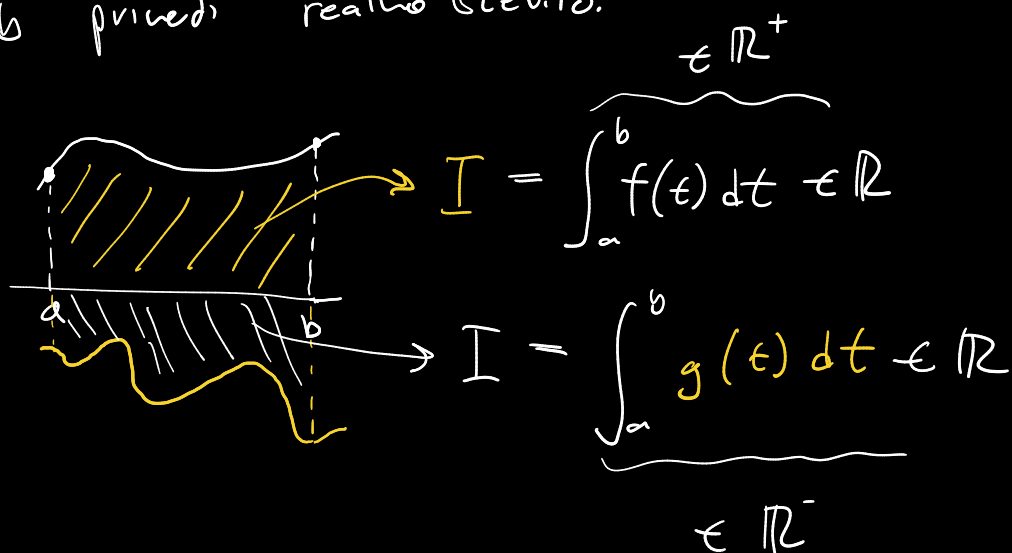 b privedi realno število.
∈ ℝ⁺
I = ∫ₐᵇ f(t) dt ∈ ℝ
a
b
I = ∫ₐᵇ g(t) dt ∈ ℝ
∈ ℝ⁻